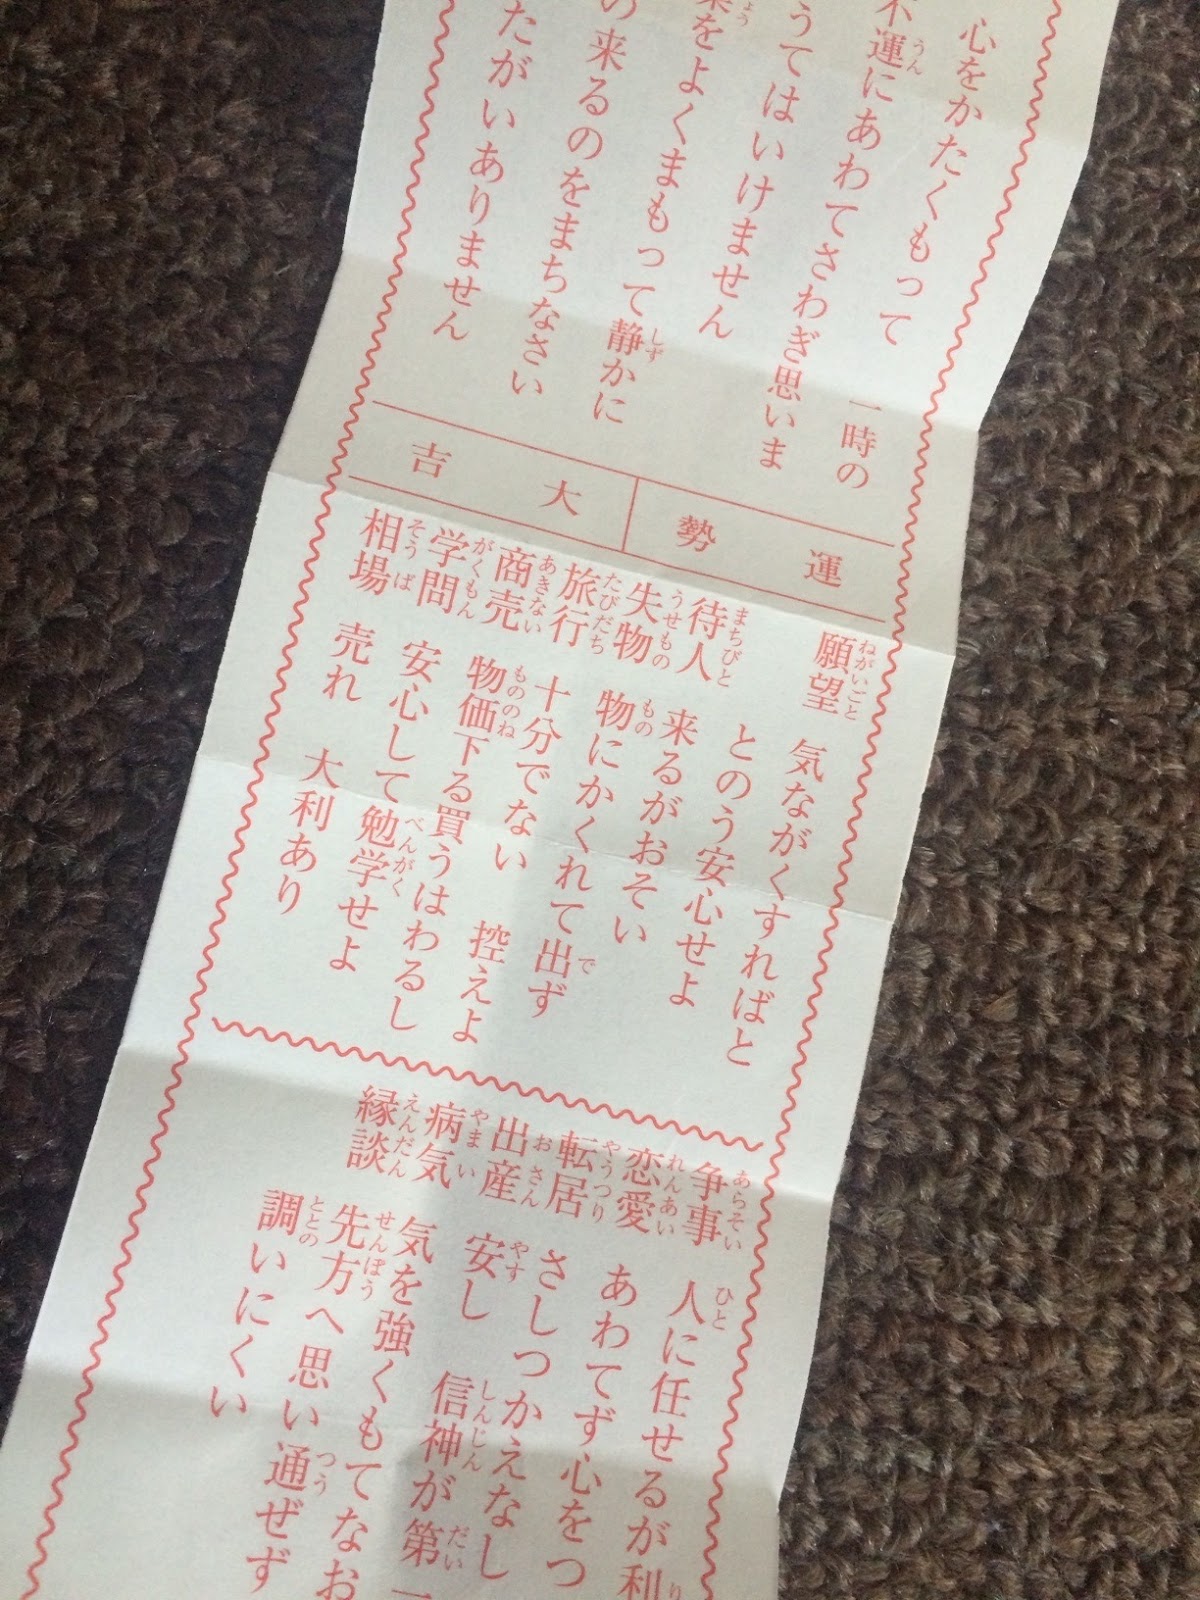 心をかたくもって　一時の
不運にあわてさわぎ思いま
うてはいけません
業をよくまもって静かに
の来るのをまちなさい
たがいありません
運勢　大吉
願望　気ながくすればと
とのう安心せよ
待人　来るがおそい
失物　物にかくれて出ず
旅行　十分でない　控えよ
商売　物価下る買うはわるし
学問　安心して勉学せよ
相場　売れ　大利あり
争事　人に任せるが利
恋愛　あわてず心をつ
転居　さしつかえなし
出産　安し　信神が第一
病気　気を強くもてなお
縁談　先方へ思い通ぜず
調いにくい